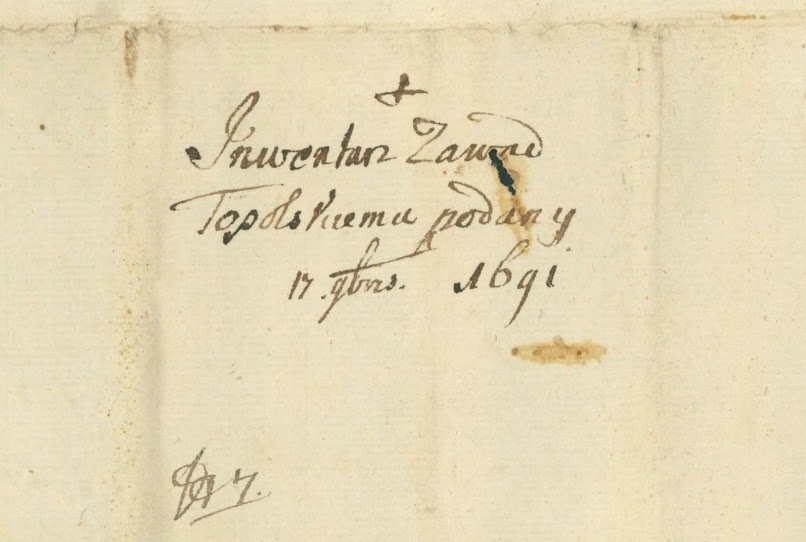 Inwentarz Zawad
Topolskiemu podany
17 .9bris. 1691
7.